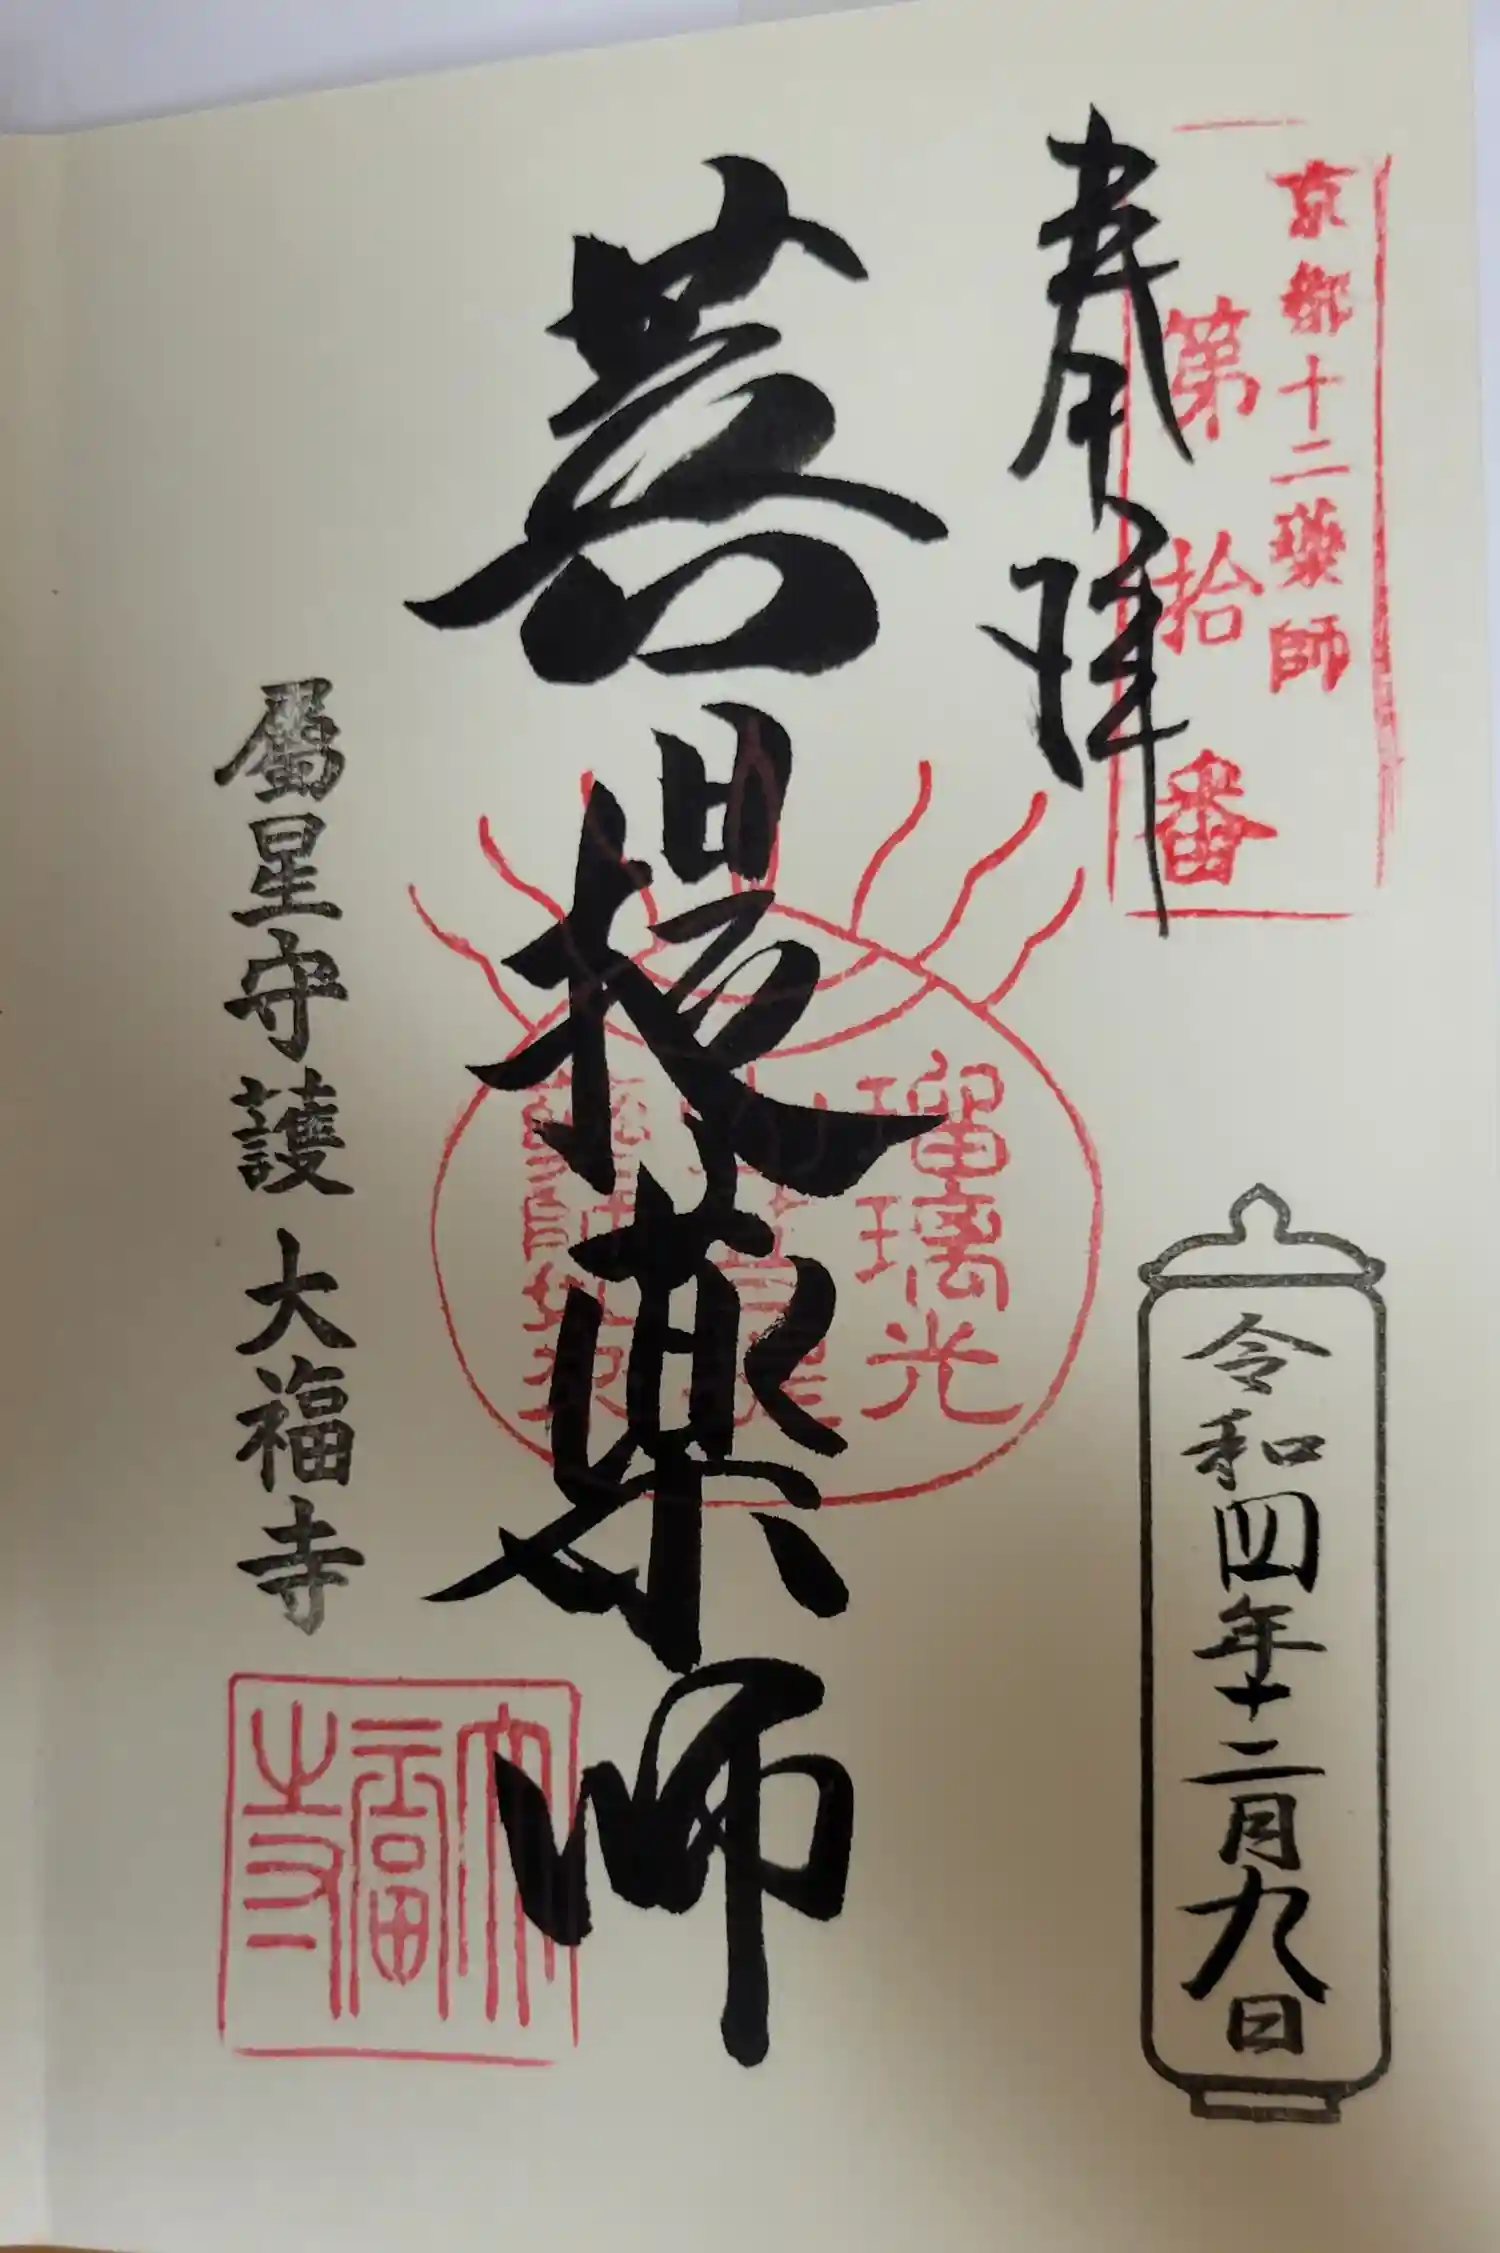 京都十二薬師
第拾番
奉拝
令和四年十二月九日
菩提薬師
瑠璃光
屬星守護 大福寺
大福寺